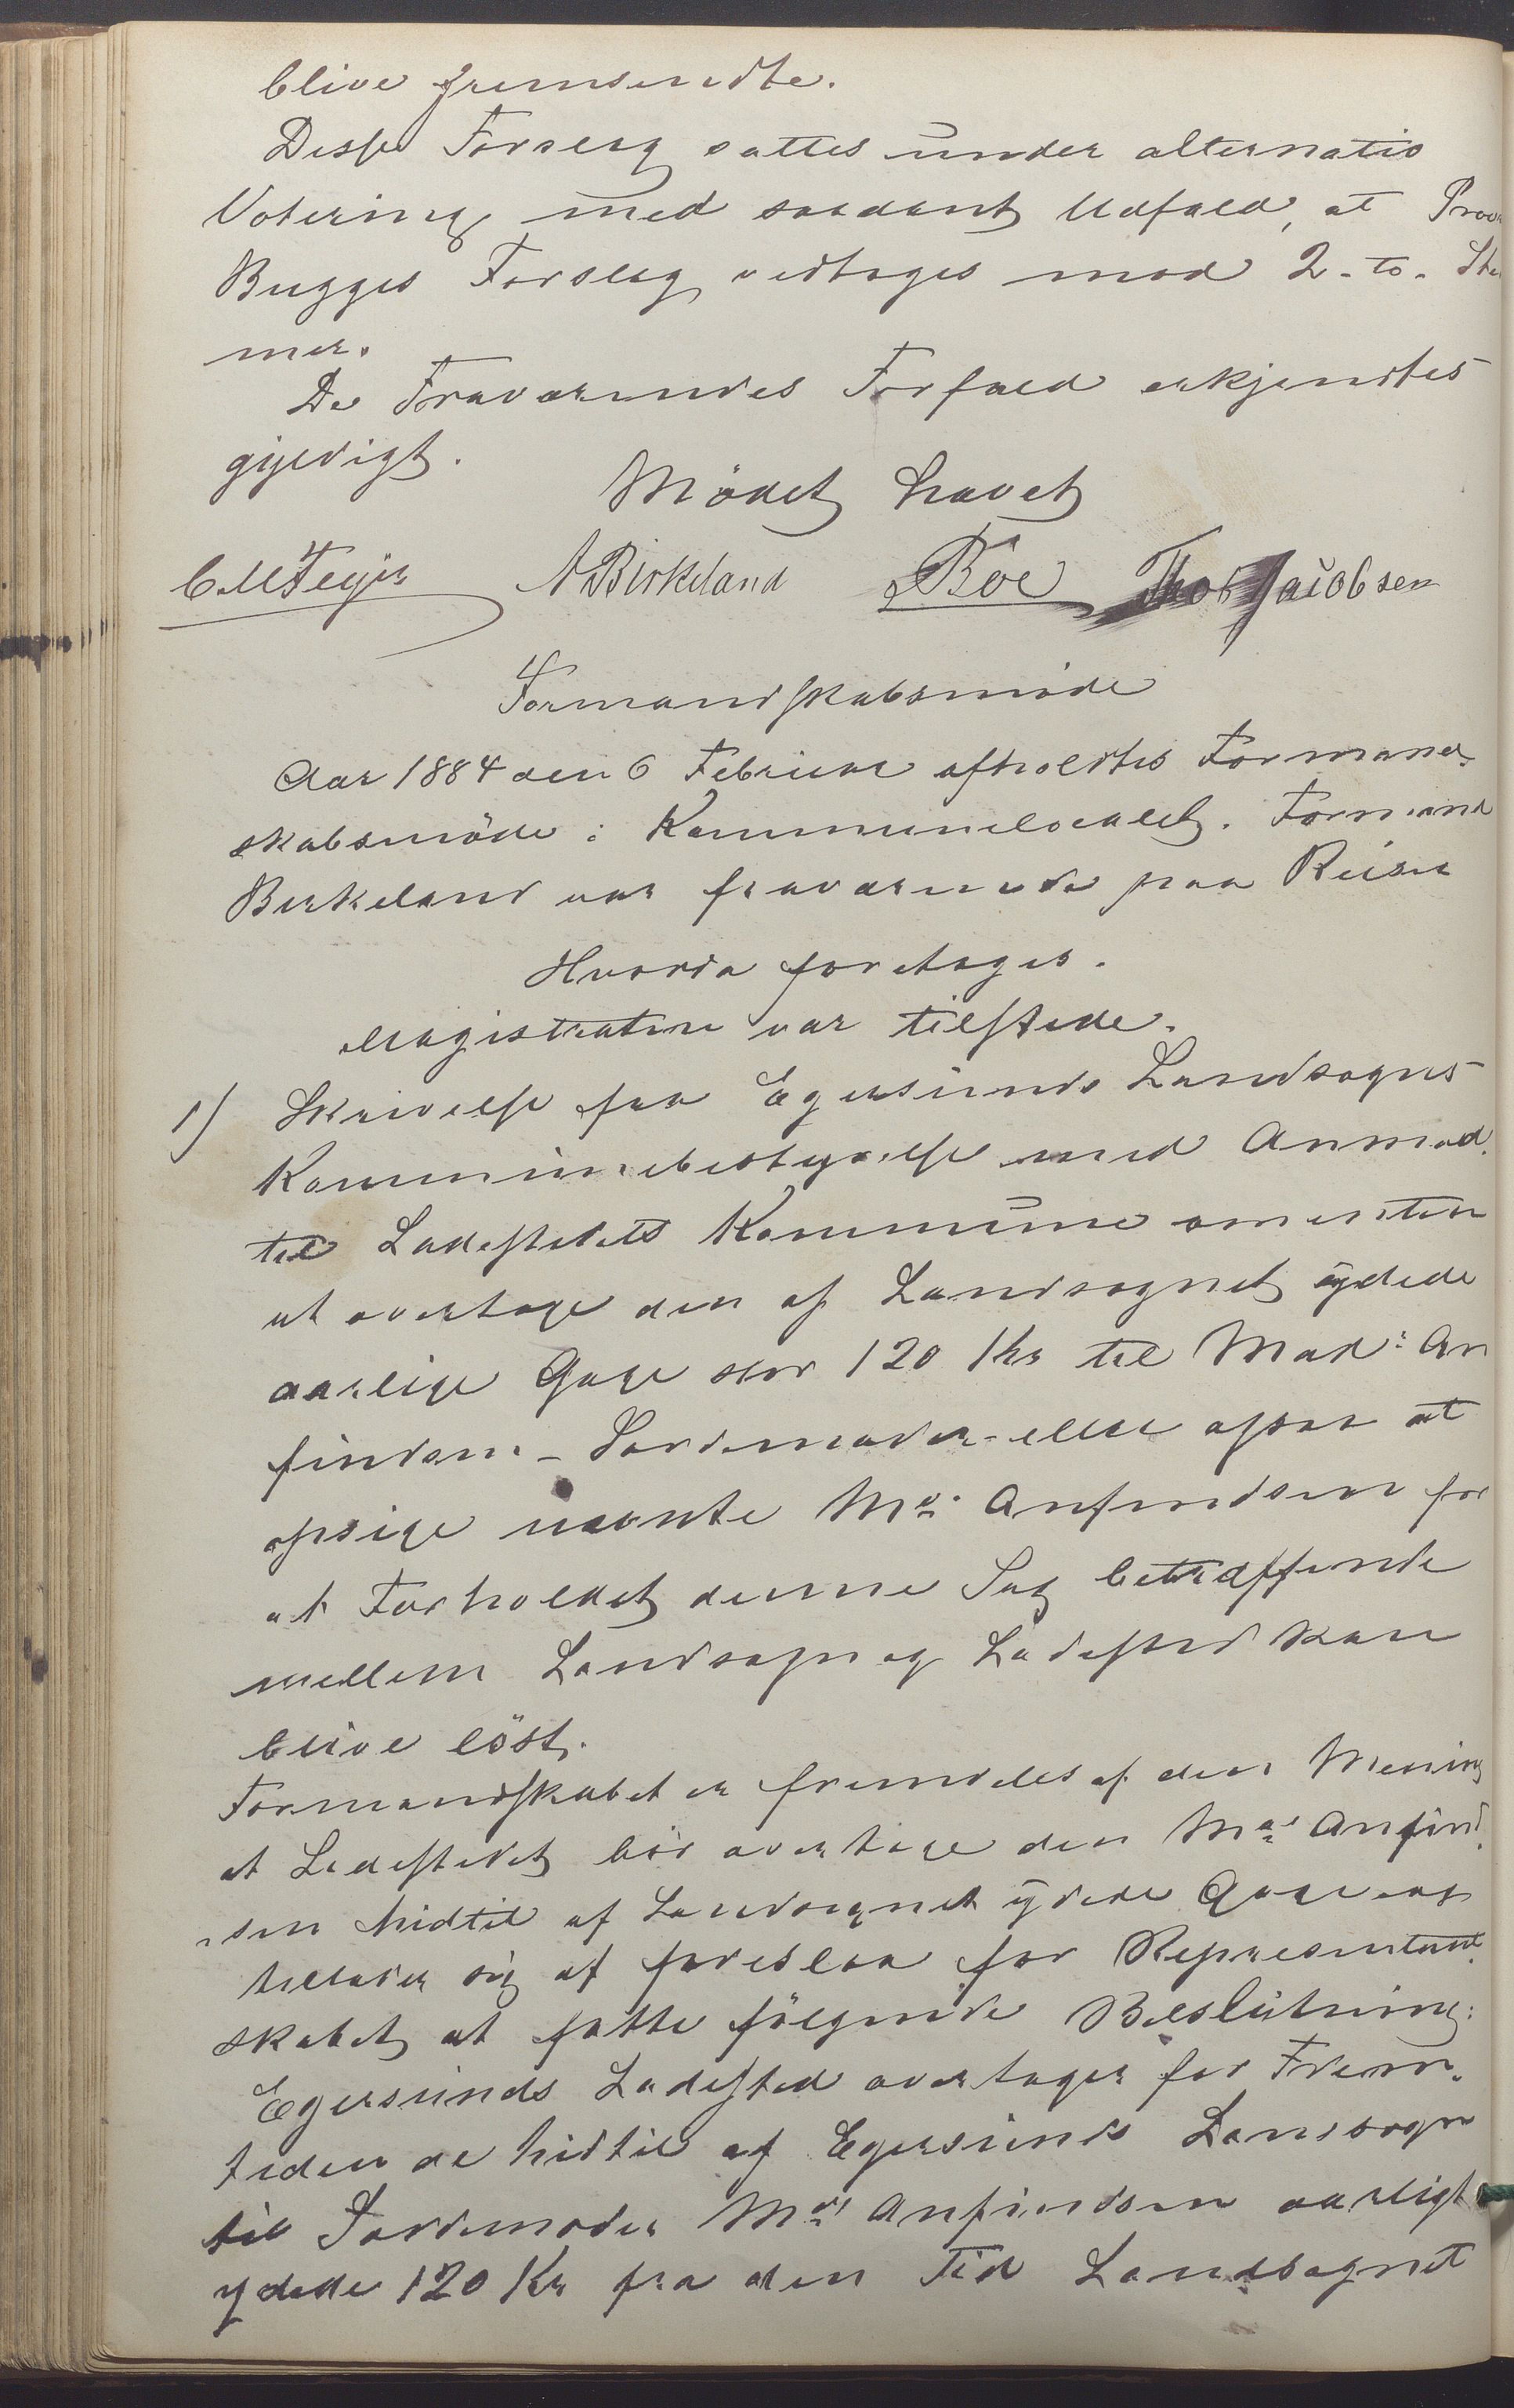 blive fremsendte.
Disse Forslag sattes under alternativ
Votering med saadant Udfald, at Prov
Bugges Forslag vedtoges mod 2-to-Stem
mer.
De Fraværendes Forfald erkjendtes
gyldigt.
Mödet hævet
C M Feyer A Birkeland Böe Thos Jacobsen
Formandskabsmöde
Aar 1884 den 6 Februar afholdtes Formand-
skabsmöde i Kommunelocalet. Formand
Birkeland var fraværende paa Reise
Hvorda foretoges.
Magistraten var tilstede.
1) Skrivelse fra Egersunds Landsogns
Kommunebestyrelse med Anmod.
til Ladestedets Kommune om enten
at overtage den af Landsognet ydede
aarlige Gage stor 120 Kr til Mad: An
findsen - Jordemoder - eller ogsaa at
opsige nævnte Md: Anfindsen for
at Forholdet denne Sag betræffende
mellem Landsogn og Ladested kan
blive löst.
Formandskabet er fremdeles af den Mening
at Ladestedet bör overtage den Md: Anfind-
sen hidtil af Landsognet ydede Gage og
tillader sig at foreslaa for Repræsentant-
skabet at fatte fölgende Beslutning:
Egersunds Ladested overtager for Frem-
tiden de hidtil af Egersunds Landsogn
til Jordemoder Md: Anfindsen aarligt
ydede 120 Kr fra den Tid Landsognet